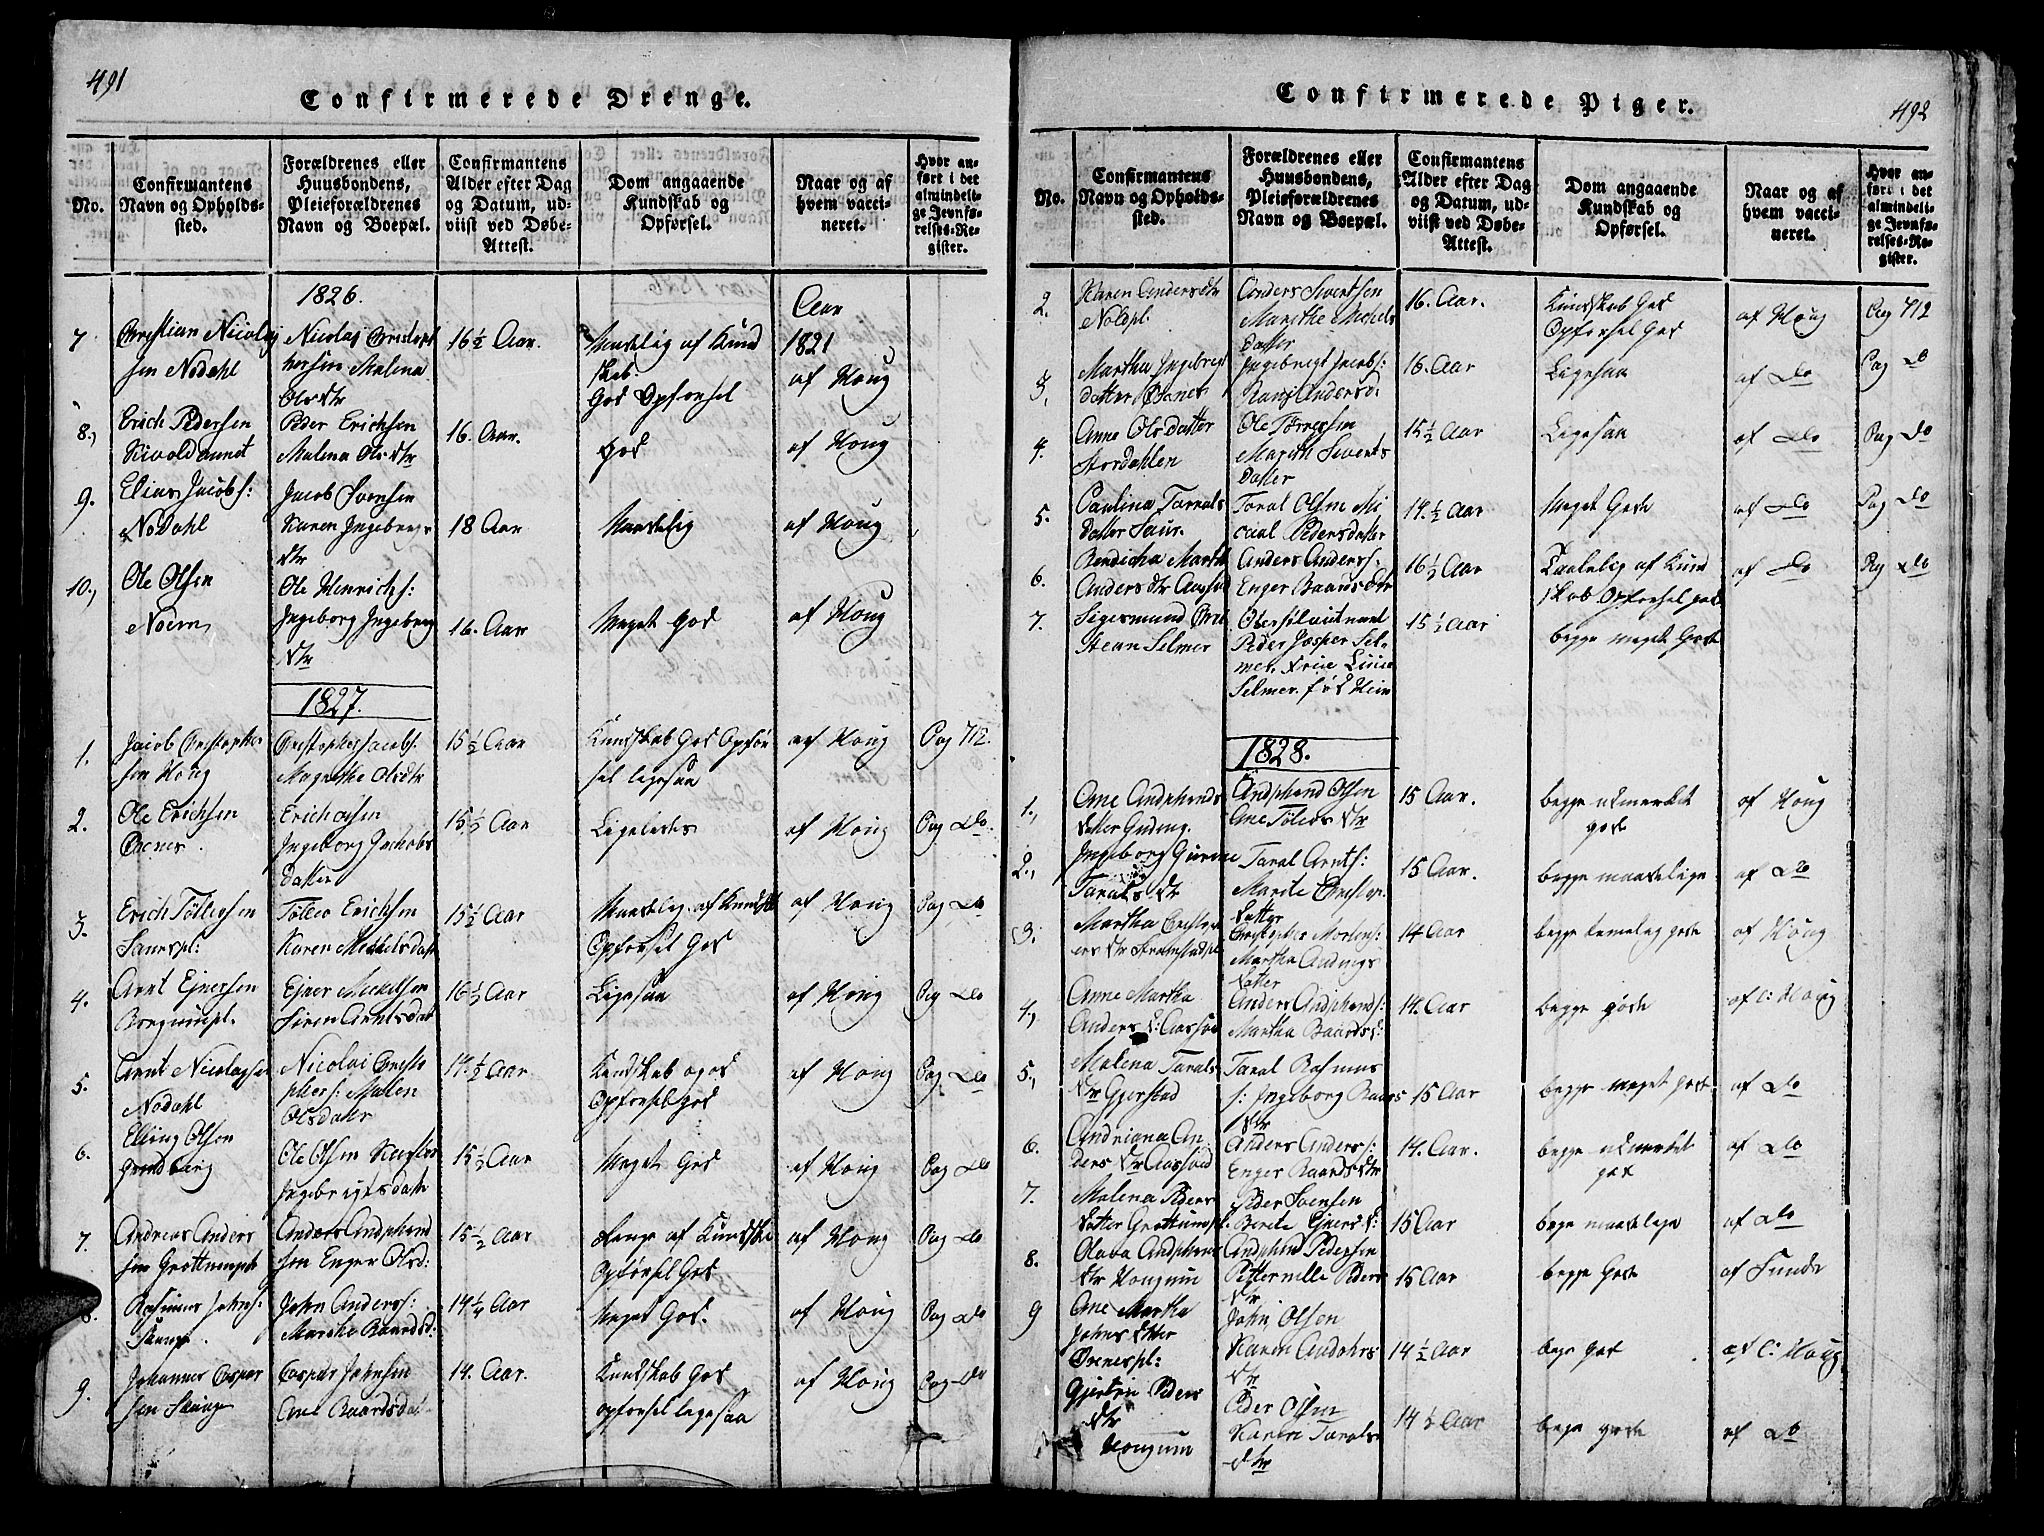 491
Confirmerede Drenge.
No.
Confirmantens
Navn og Opholds-
sted.
Forældrenes eller
Huusbondens,
Pleieforældrenes
Navn og Boepæl.
Confirmantens
Alder efter Dag
og Datum, ud-
viist ved Døbe-
Attest.
Dom angaaende
Kundskab og
Opførsel.
Naar og af
hvem vacci-
neret.
Hvor an-
ført i det
almindeli-
ge Jevnfø-
relses-Re-
gister.
1826.
7
Christian Nicolaj
sen Nodahl
Nicolas Christop
hersen Malena
Olsdtr
16½ Aar.
Maadelig af Kund
skab.
God Opførsel
Aar
1821
af Houg
8.,
Erich Pedersen
Peder Erichsen
Malena Olsdtr
16. Aar.
God
af Houg
9.
Elias Jacobs:
Nodahl
Jacob Svensen
Karen Ingebrigs
dtr
18 Aar
Maadelig
af Houg
10.,
Ole Olsen
Noem
Ole Henrichs:
Ingeborg Ingebrig
dtr
16. Aar
Meget God
af Houg
1827.
1.
Jacob Christopher
sen Houg
Christopher Jacobs:
Magrethe Olsdtr
15½ Aar
Kundskab God Opfør
sel ligesaa
af Houg
Pag 712.
2.
Ole Erichsen
Ørenes.
Erich Olsen
Ingeborg Jachobs
datter
15½ Aar
Ligeledes
af Houg
Pag Do.
3.
Erich Tøllefsen
Saurspl:
Tøllev Erichsen
Karen Michelsdatr
15½ Aar
Maadelig af Kundsk
Opførsel God
af Houg
Pag Do
4.
Arnt Ejnersen
Ejner Mickelsen
Siren Arntsdat
16½ Aar
Ligesaa
af Houg
Pag Do
5.
Arnt Nicolajsen
Nodahl
Nicolai Christo
phers: Malen
Olsdatr
14½ Aar
Kundskab og od
Opførsel God
af Houg
Pag Do
6.
Elling Olsen
Grindberg
Ole Olsen
Ingebrigtsdatr
15½ Aar
Meget God
af Houg
Pag Do
7.
Andreas Anders
sen
Anders Andphind
sen Enger Olsd:
15½ Aar
af Kundska
Opførsel God
af Houg
Pag Do
8.
Rasmus Johns:
Skauge.
John Anders:
Marthe Baardsd:
14¼ Aar
Meget God.
af Houg
Pag Do
9.
Johannes Casper
sen Skauge
Casper Johnsen
Ane Baardsda:
14. Aar.
Kundskab God
opførsel ligesaa
af Houg
Pag Do
Confirmerede Piger.
492
No.
Confirmantens
Navn og Opholds-
sted.
Forældrenes eller
Huusbondens,
Pleieforældrenes
Navn og Boepæl.
Confirmantens
Alder efter Dag
og Datum, ud-
viist ved Døbe-
Attest.
Dom angaaende
Kundskab og
Opførsel.
Naar og af
hvem vacci-
neret.
Hvor an-
ført i det
almindeli-
ge Jevnfø-
relses-Re-
gister.
2.
Karen Andersdtr
Anders Sivertsen
Marethe Michels
datter
16. Aar.
Kundskab God
Opførsel God
af Houg
Pag 712
3,
Martha Ingebrigt
datter Ørenes
Ingebrigt Jacobs:
Randi Andersd.
16. Aar
Ligesaa
af Do
Pag Do
4.
Anne Olsdatter
Stordahlen
Ole Tørresen
Mareth Siverts
datter
15½ Aar
Ligesaa
af Do
Pag Do
5.
Paulina Tarals
datter Saur.
Taral Olsen Mi
cael Pedersdatter
14½ Aar
Meget Gode
af Do
Pag Do
6.
Bendicha Martha
Anders dtr Aassad
Anders Anders:
Enger Baardsdtr
16½ Aar
Taalelig af Kund
skab Opførsel god
af Do
Pag Do
7.
Sigesmund Chri
stean Selmer
Oberstlieutnant
Peder Jesper Sel-
mer, Frue
Selmer. fød
15½ Aar
begge meget Gode
1828.
1.,
Ane Andphends
datter Guding.
Andphend Olsen
Ane Tøllefs dtr
15 Aar.
begge udmerket
gode
af Houg
2.,
Ingeborg Gurine
Tarals dtr
Taral Arnts:
Marite Christop.
datter
15 Aar.
begge maadelige
af Do
3.
Martha Christoph
ers dtr
Christopher Mortens:
Martha Audings
datter
14 Aar
begge temelig gode
af Houg
4.,
Anne Martha
Anders d: Aassad
Anders Andphends:
Martha Baardsd:
14. Aar
begge gode
af C: Houg
5.,
Malena Tarals
dtr Gjerstad
Taral Rasmus
s: Ingeborg Baars
dtr
15 Aar
begge meget gode
af Do
6.
Andriana An
ders dtr Aassad
Anders Anders:
Enger Baardsdtr
14. Aar.
begge udmerket
god
af Do
7.
Malena Peders
datter
Peder Svensen
Berete Ejners d:
15 Aar
bege maadelige
af Do
8.
Olava Andphens
dtr Hougum
Andphen Pedersen
Petternelle Peders
dtr
15 Aar
begge Gode
af Lunde
9
Ane Martha
Johns dtter
Ørenespl:
John Olsen
Karen Andohrs
dtr
14½ Aar
bege god
af C: Houg
Gjertru Peders
dtr
Hougum
Peder Olsen
Karen Tarals
dtr
14½ Aar
bege gode
af Do